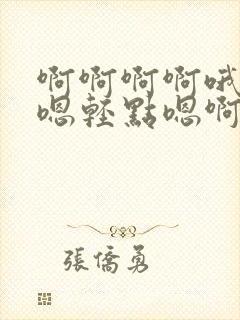 啊啊啊啊哦
嗯輕點嗯啊
張僑勇